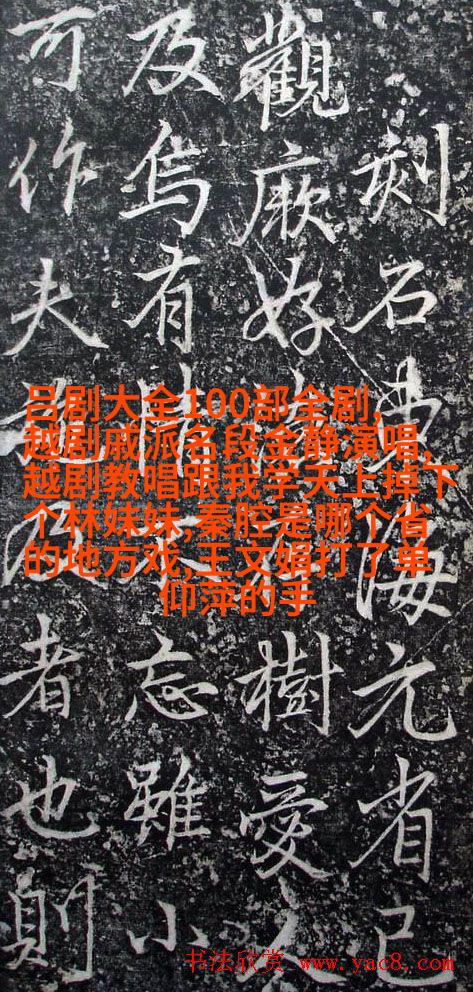 刻石海元省己
觀厥好樹愛
及烏有情忘雖小
可作夫者也則
吕剧大全100部全剧,
越剧戚派名段金静演唱,
越剧教唱跟我学天上掉下
个林妹妹,秦腔是哪个省
的地方戏,王文娟打了单
仰萍的手
书法欣赏 www.yac8.com